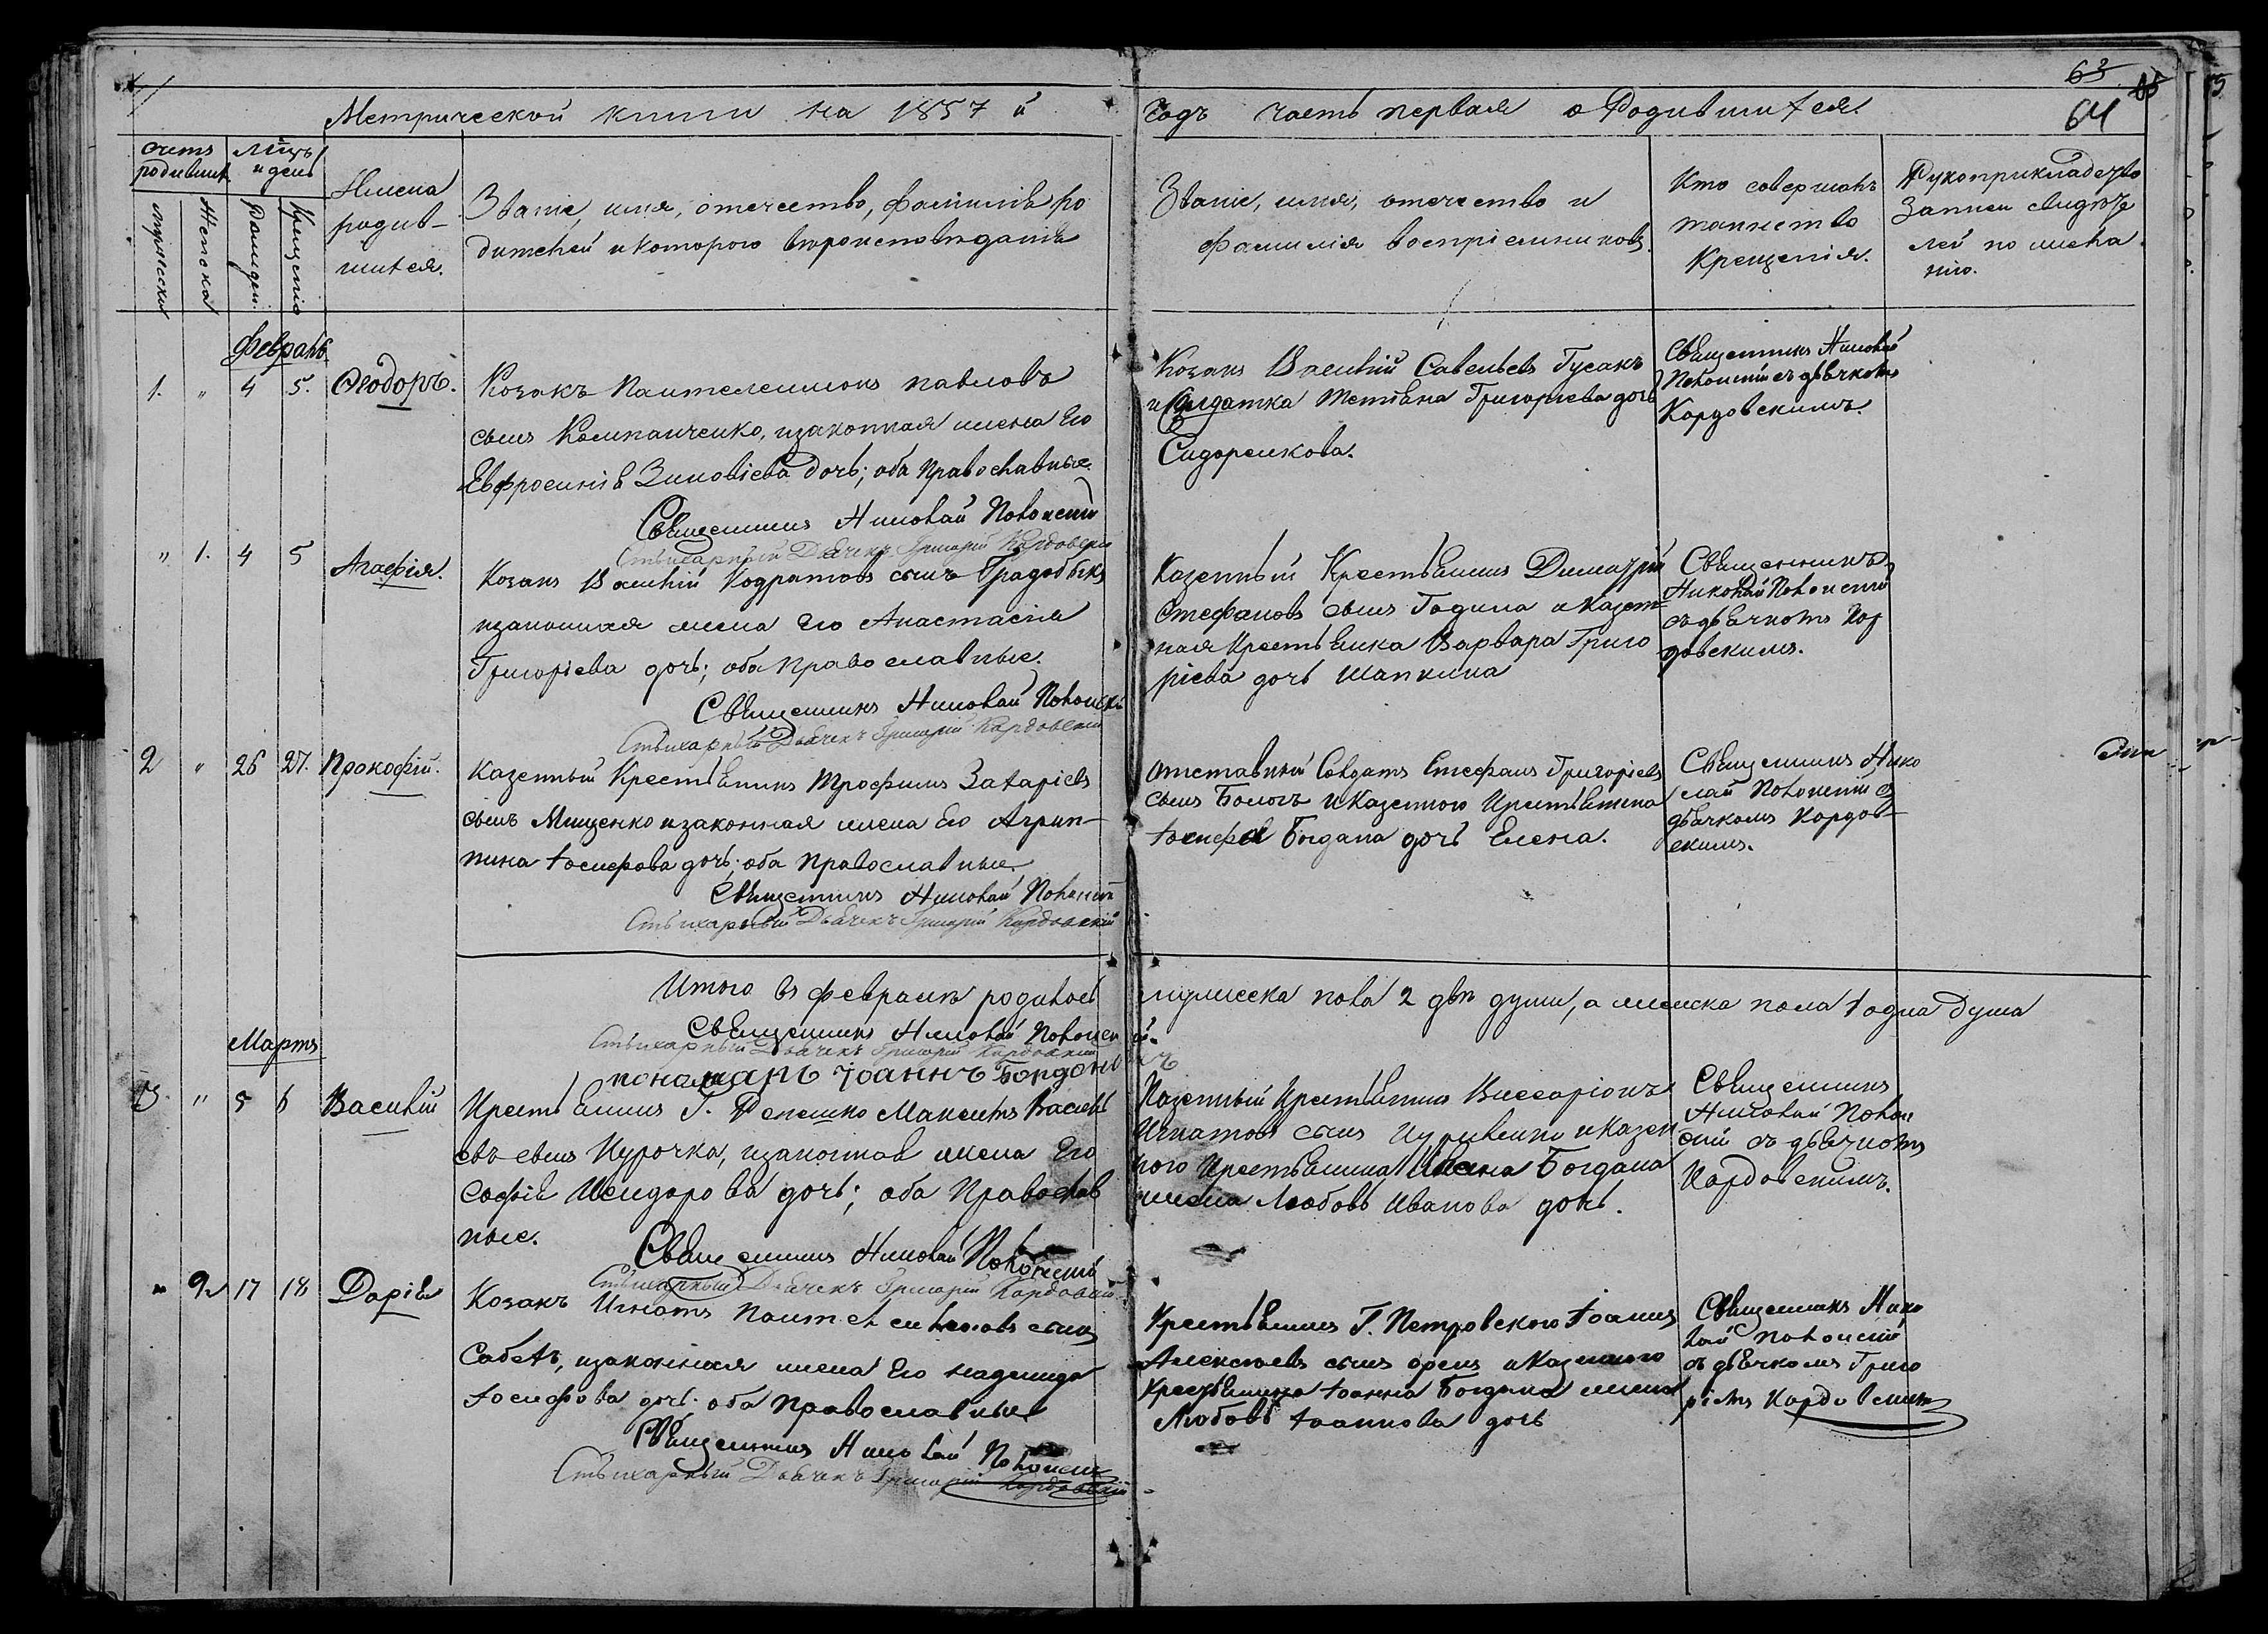 63
85
64
Метрической книги на 1857 й
Годъ часть первая о Родившихся.
Счетъ родивших.
Мцъ и день
Имена
родив-
шихся.
Званіе, имя, отечество, фамилія ро
дителей и которого вероисповѣданія
Званіе, имя, отечество и
фамилія воспріемниковъ.
Кто совершалъ
таинство
Крещенія.
Рукоприкладство
записи свидѣте
лей по жела
нію.
мужеска
Женска
Рожден.
Крещенія
Февраль
1. " 4 5. Ѳеодоръ.
Козакъ Пантелеимонъ Павловъ
сынъ Компанченко, изаконная жена Его
Евфросинія Зиновіева дочь; оба православные.
Священникъ Николай
Стихарный Дьячекъ Григорій Кордовскій
Козакъ Василій Савельевъ Гусакъ
и Солдатка Тетіяна Григоріева дочь
Сидоренкова.
Священникъ Николай
съ дьячкомъ
Кордовскимъ.
" 1. 4 5 Агафія.
Козакъ Василій Кодратовъ сынъ
изаконная жена Его Анастасія
Григоріева дочь; оба православные.
Священникъ Николай
Стихарный Дьячекъ Григорій Кордовскій
Казенный Крестьянинъ Димитрій
Стефановъ сынъ Година и Казен=
ная Крестьянка Варвара Григо
ріева дочь Шапкина
Священникъ
Николай
съ дьячкомъ Кор
довскимъ.
2 " 26 27. Прокофій.
Казенный Крестьянинъ Трофимъ Захаріевъ
сынъ Мищенко изаконная жена Его Агрип-
пина Іосифова дочь; оба Православные.
Священникъ Николай
Стихарный Дьячекъ Григорій Кордовскій
Отставный Солдатъ Стефанъ Григоріевъ
сынъ и Казенного Крестьянина
Іосифа Богдана дочь Елена.
Священникъ Нико
лай съ
дьячкомъ Кордов-
скимъ.
Итого въ февралѣ родилось
мужеска пола 2 двѣ души, а женска пола 1 одна душа
Священникъ Николай
Стихарный Дьячекъ Григорій Кордовскій
пономарь Іоаннъ
Мартъ
3. " 5 6 Василій
Крестьянинъ Г. Максимъ Василь
евъ сынъ Курочка, изаконная жена Его
Софія Исидорова дочь; оба Православ
ные.
Священникъ Николай
Стихарный Дьячекъ Григорій Кордовскій
Казенный Крестьянинъ Виссаріонъ
Игнатовъ сынъ и Казен
ного Крестьянина Ивана Богдана
жена Любовь Иванова дочь.
Священникъ
Николай
съ дьячкомъ
Кордовскимъ.
" 2 17 18 Дарія
Козакъ Игнатъ Пантелеимоновъ сынъ
изаконная жена Его Надежда
Іосифова дочь. оба Православные
Священникъ Николай
Стихарный Дьячекъ Григорій Кордовскій
Крестьянинъ Г. Петровского Іоаннъ
Алексѣевъ сынъ и Казенного
Крестьянина Іоанна Богдана жена
Любовь Іоаннова дочь
Священникъ Нико
лай
съ дьячкомъ Григо
ріемъ Кордовскимъ